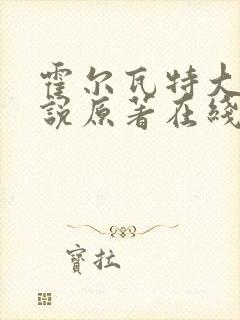 霍尔瓦特大
说原著在线
寶拉